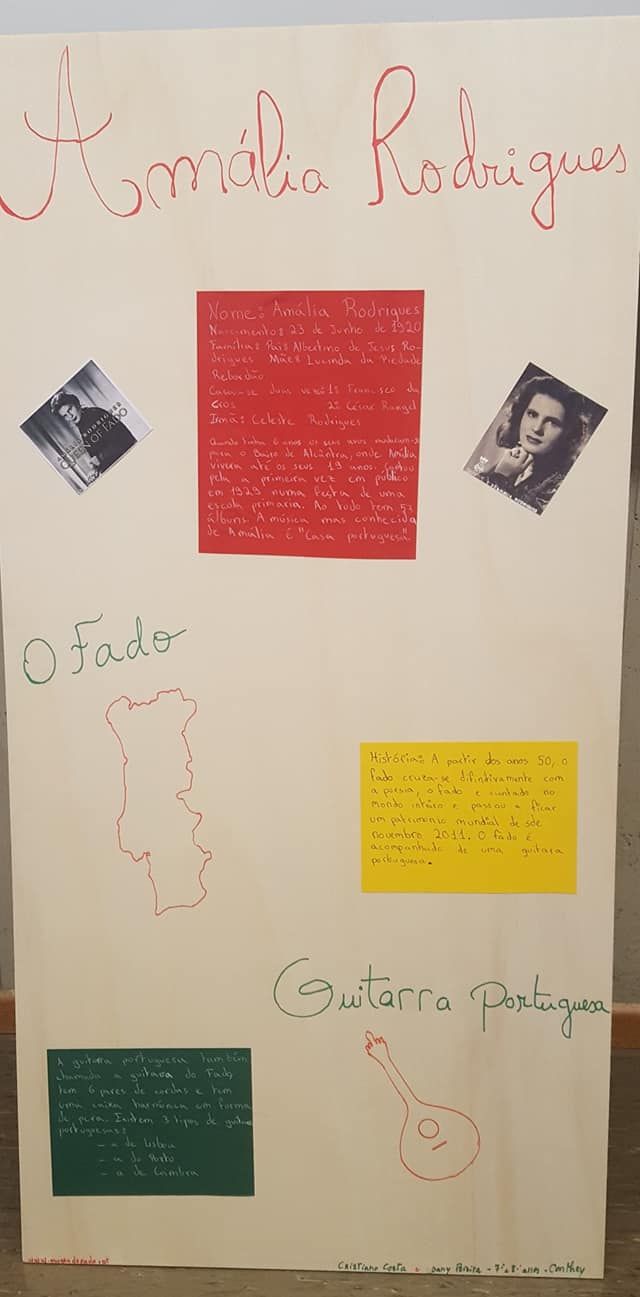 Amália Rodrigues
Nome: Amália Rodrigues
Nascimento: 23 de Junho de 1920
Família: Pai: Albertino de Jesus Ro-
drigues Mãe: Lucinda da Piedade
Rebordão
Casou-se duas vezes: 1º Francisco da
Cros 2º César Rangel
Irmã: Celeste Rodrigues
Quando tinha 6 anos os seus
para o Bairo de Alcântra, onde Amália
vivera até os seus 19 anos. Cantou
pela a primeira vez em público
em 1929 numa festa de uma
escola primaria. Ao todo tem 57
álbuns. A música mas conhecida
de Amália é "Casa portuguesa"
AMÁLIA RODRIGUES
QUEEN OF FADO
O Fado
História: A partir dos anos 50, o
fado cruza-se difintivamente com
a poesia, o fado e cantado no
mondo intéiro e passou a ficar
um património mundial de sde
novembro 2011. O fado é
acompanhado de uma guitara
portuguesa.
Guitarra portuguesa
A guitarra portuguesa também
chamada a guitara do Fado,
tem 6 pares de cordas e tem
uma caixa harmónica em forma
de pera. Existem 3 tipos de guitaras
portuguesas:
- a de Lisboa
- a do Porto
- a de Coimbra
Cristiano Costa e Dany Pereira - 7º e 8º - Conthey